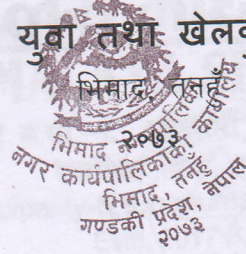 युवा तथा खेलकु
भिमाद, तनहुँ
२०७३
भिमाद नगरपालिका
नगर कार्यपालिकाको कार्यालय
भिमाद, तनहुँ
गण्डकी प्रदेश, नेपाल
२०७३